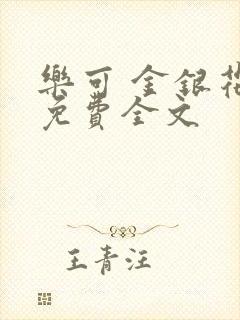 樂可 金銀花
免費全文
王青汪